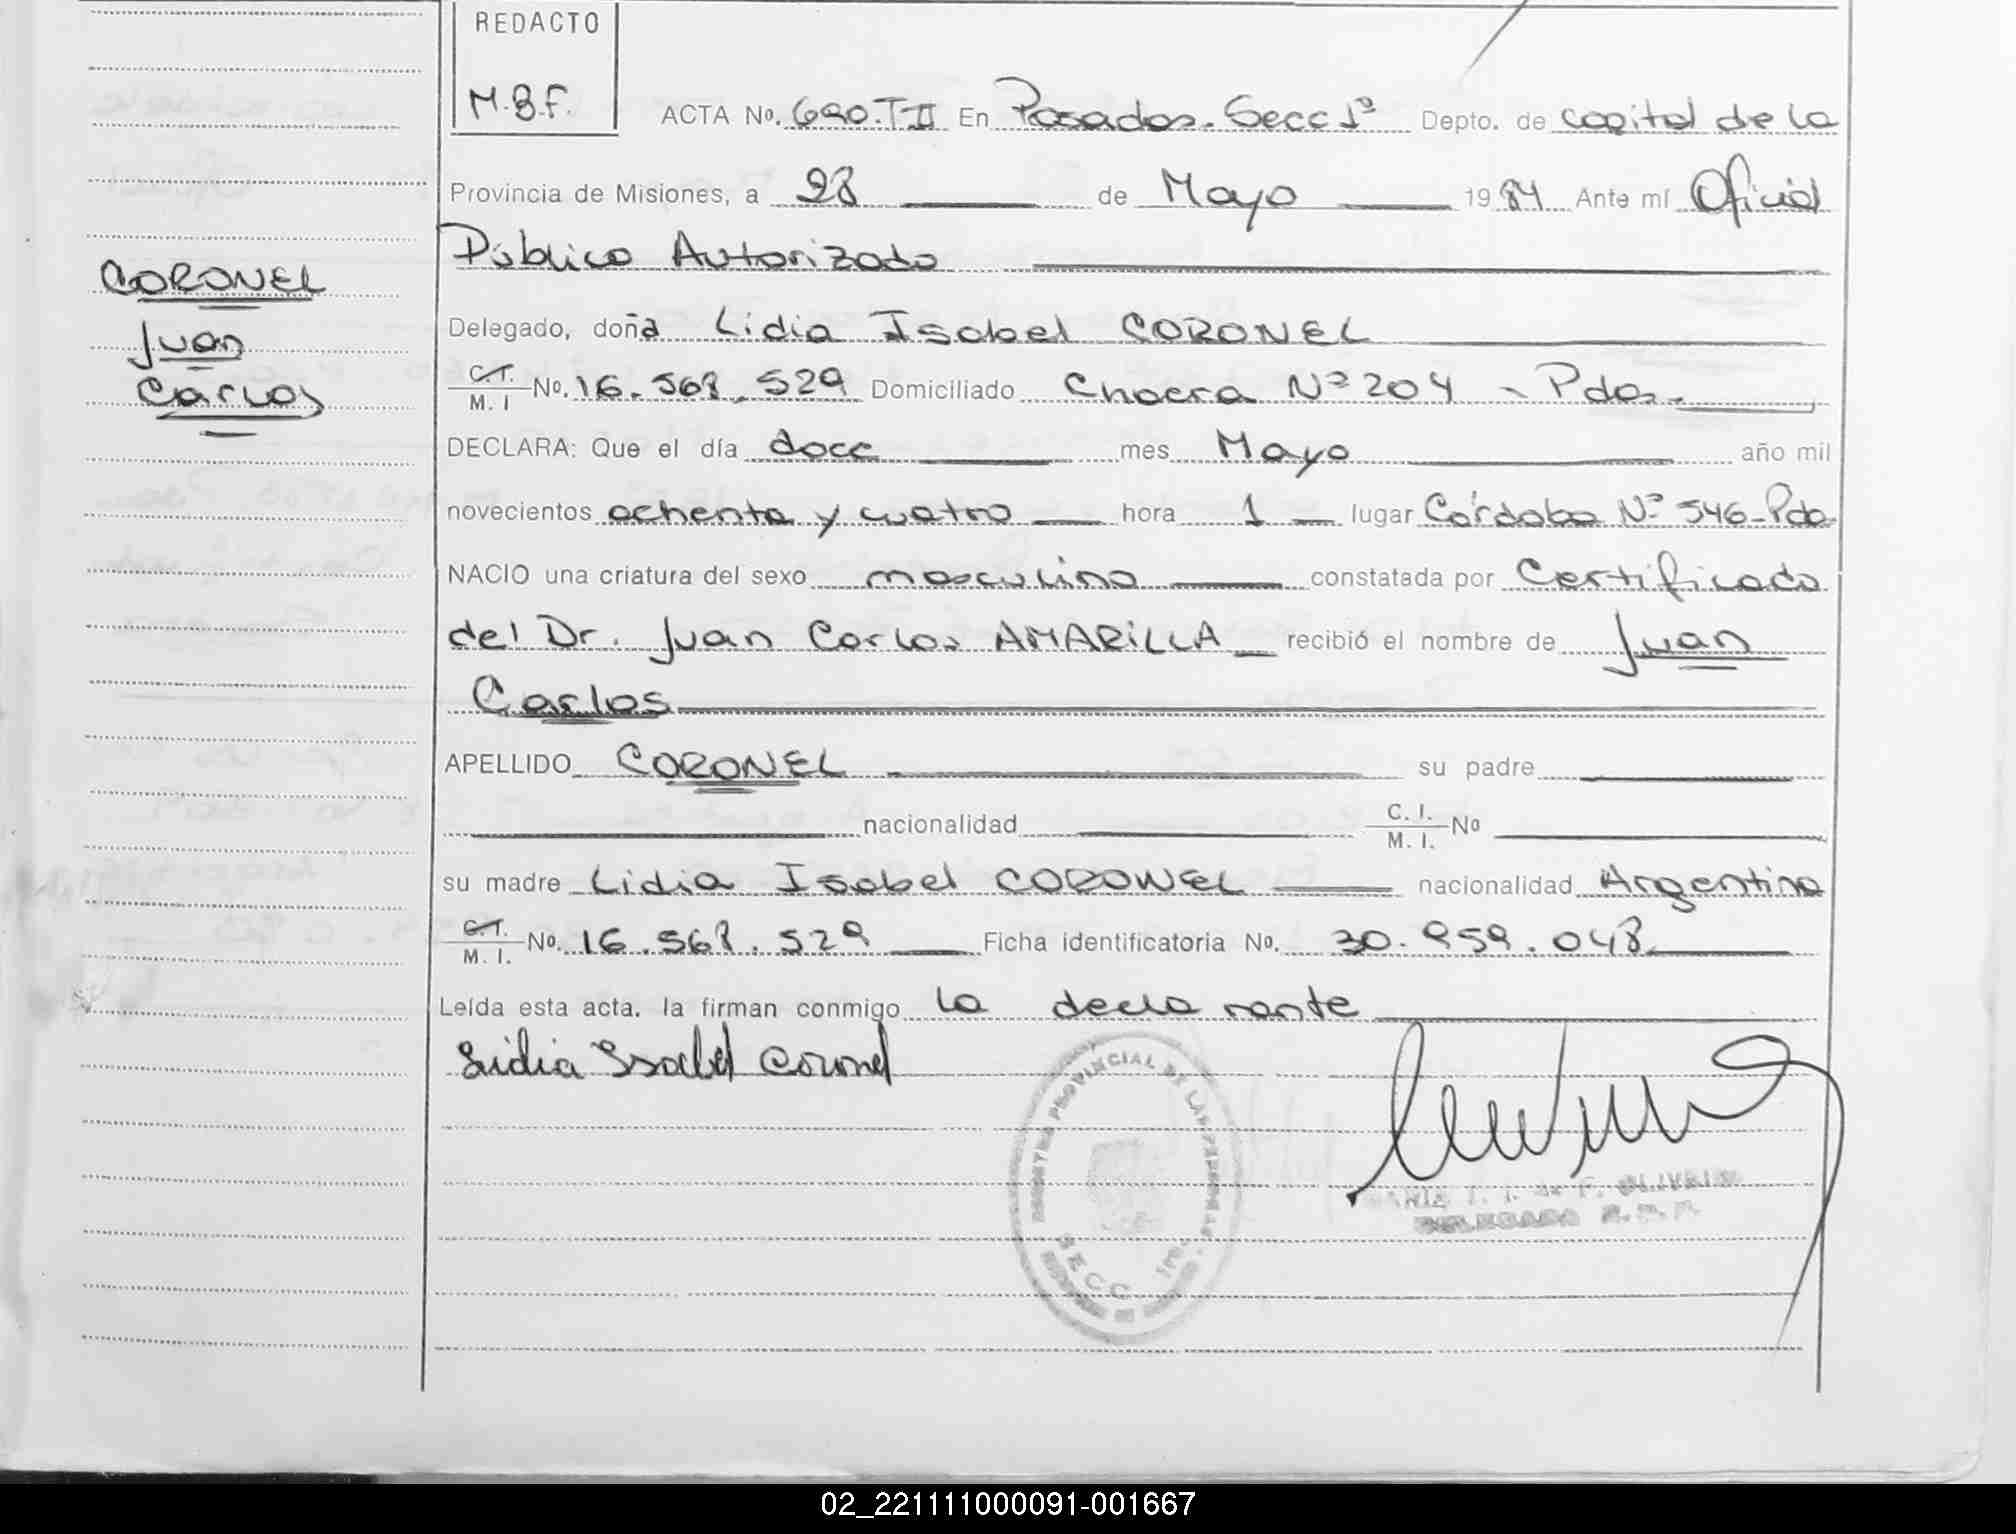 REDACTO
M.B.F.
ACTA No. 690.T-II En Posadas. Secc 1ª Depto. de capital de la
Provincia de Misiones, a 28 de Mayo 1984 Ante mí Oficial
Público Autorizado
CORONEL
Juan
Carlos
Delegado, doña Lidia Isabel CORONEL
C.I. M. I No. 16.568.529 Domiciliado Chacra Nº 204 - Pdas.
DECLARA: Que el día doce mes Mayo año mil
novecientos ochenta y cuatro hora 1 lugar Córdoba Nº 546-Pda
NACIO una criatura del sexo masculino constatada por Certificado
del Dr. Juan Carlos AMARILLA recibió el nombre de Juan
Carlos
APELLIDO CORONEL su padre
nacionalidad C. I. M. I. No
su madre Lidia Isabel CORONEL nacionalidad Argentina
C.I. M. I. No. 16.568.529 Ficha identificatoria No. 30.959.048
Leída esta acta. la firman conmigo la declarante
Lidia Isabel Coronel
PROVINCIAL DE LAS PERSONAS
SECC. 1ra.
DELEGADA
02_221111000091-001667